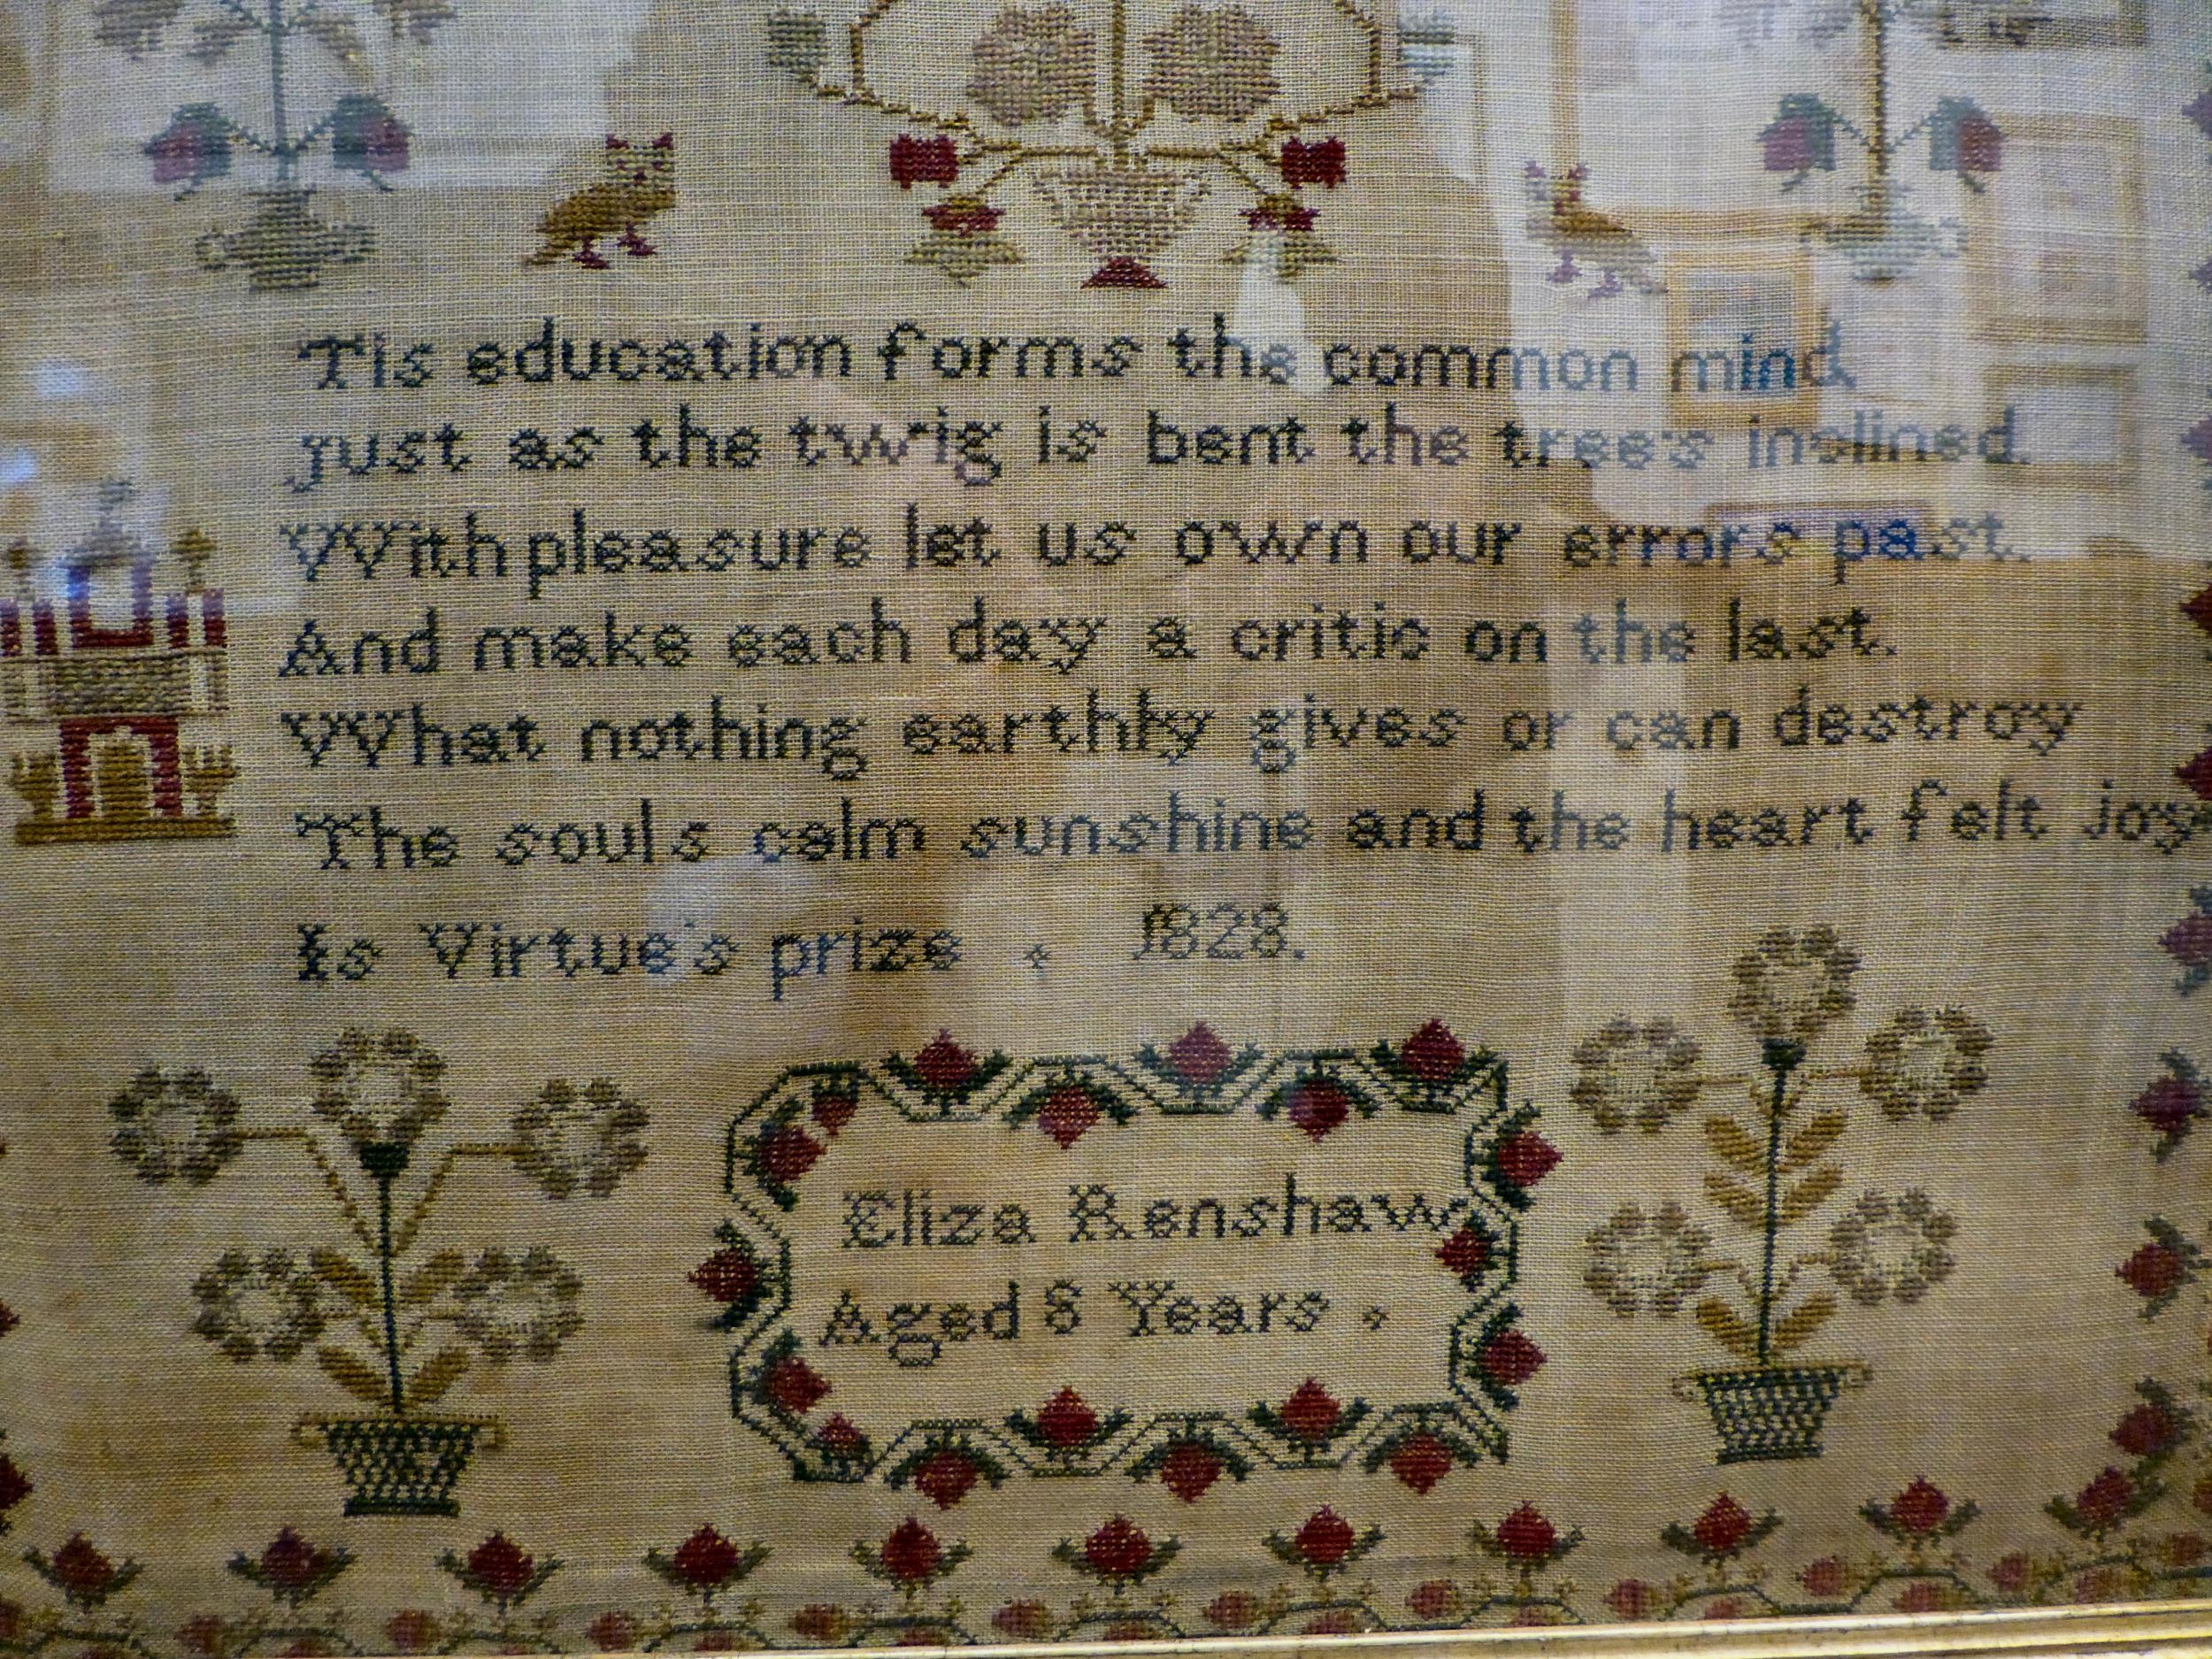 Tis education forms the common mind.
just as the twig is bent the tree's inclined.
With pleasure let us own our errors past.
And make each day a critic on the last.
What nothing earthly gives or can destroy
The souls calm sunshine and the heart felt joy
Is Virtue's prize . 1828.
Eliza Renshaw
Aged 8 Years .